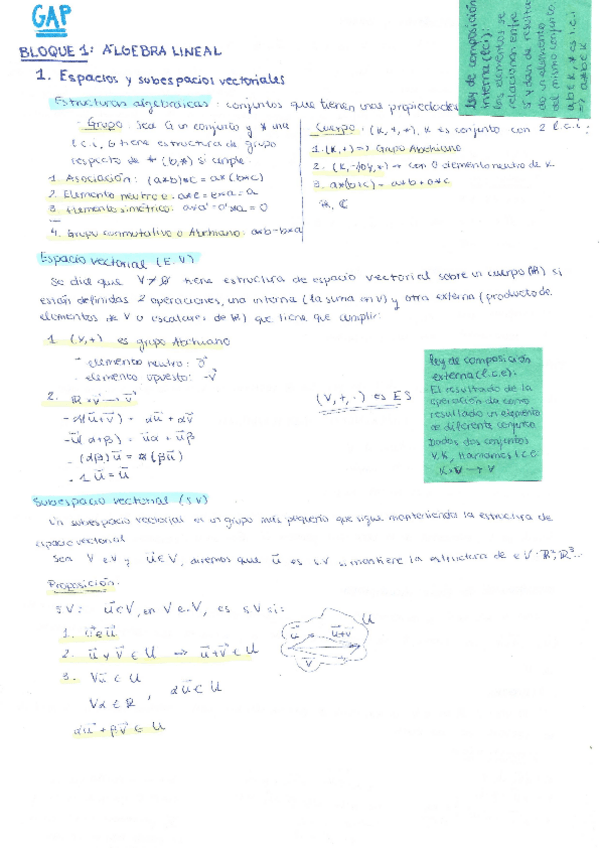 GAP
BLOQUE 1: ÁLGEBRA LINEAL
1. Espacios y subespacios vectoriales
Estructuras algebraicas: conjuntos que tienen unas propiedades
Ley de composición
interna (l.c.i):
los elementos se
relacionan entre
sí y dan de resulta-
do un elemento
del mismo conjunto.
a,b ∈ K, * es l.c.i
=> a*b ∈ K
- Grupo: Sea G un conjunto y * una
l.c.i, G tiene estructura de grupo
respecto de * (G,*) si cumple:
1. Asociación: (a*b)*c = a*(b*c)
2. Elemento neutro e: a*e = e*a = a
3. Elemento simétrico: a*a' = a'*a = 0
4. Grupo conmutativo o Abeliano: a*b = b*a
Cuerpo: (K, +, *), K es conjunto con 2 l.c.i:
1. (K,+) => Grupo Abeliano
2. (K,-{0},*) → con 0 elemento neutro de K
3. a*(b+c) = a*b + a*c
ℝ, ℂ
Espacio vectorial (E.V)
Se dice que V≠∅ tiene estructura de espacio vectorial sobre un cuerpo (ℝ) si
están definidas 2 operaciones, una interna (la suma en V) y otra externa (producto de
elementos de V o escalares de ℝ) que tiene que cumplir:
1. (V,+) es grupo Abeliano
- elemento neutro: 0⃗
- elemento opuesto: -v⃗
2. ℝ×V → V
- α(u⃗+v⃗) = αu⃗ + αv⃗
- u⃗(α+β) = u⃗α + u⃗β
- (αβ)u⃗ = α(βu⃗)
- 1u⃗ = u⃗
(V, +, ·) es E
Ley de composición
externa (l.c.e):
El resultado de la
operación da como
resultado un elemento
de diferente conjunto
Dados dos conjuntos
V, K, llamamos l.c.e
K×V → V
Subespacio vectorial (S.V)
Un subespacio vectorial es un grupo más pequeño que sigue manteniendo la estructura de
espacio vectorial
Sea V e.v y u⃗∈V, diremos que u⃗ es s.v si mantiene la estructura de e.V. ℝ², ℝ³...
Proposición:
S V: u⃗∈V, en V e.V, es s V si:
1.
2. u⃗ y v⃗ ∈ U => u⃗+v⃗ ∈ U
3. ∀u⃗ ∈ U
∀α ∈ ℝ , αu⃗ ∈ U
αu⃗ + βv⃗ ∈ U
u⃗ u⃗+v⃗ U
v⃗